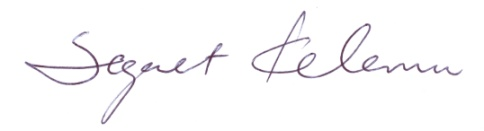 Segenet Kelemu